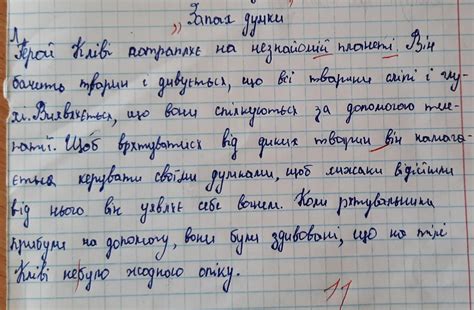 „Запах думки
1.
Герой Кліві потрапляє на незнайомій планеті. Він
бачить тварин і дивується, що всі тварини сліпі і глу-
хі. Виявляється, що вони спілкуються за допомогою теле-
патії. Щоб врятуватися від диких тварин він намага-
ється керувати своїми думками, щоб хижаки відійшли
від нього він уявляє себе вогнем. Коли рятувальники
прибули на допомогу, вони були здивовані, що на тілі
Кліві небуло жодного опіку.
11